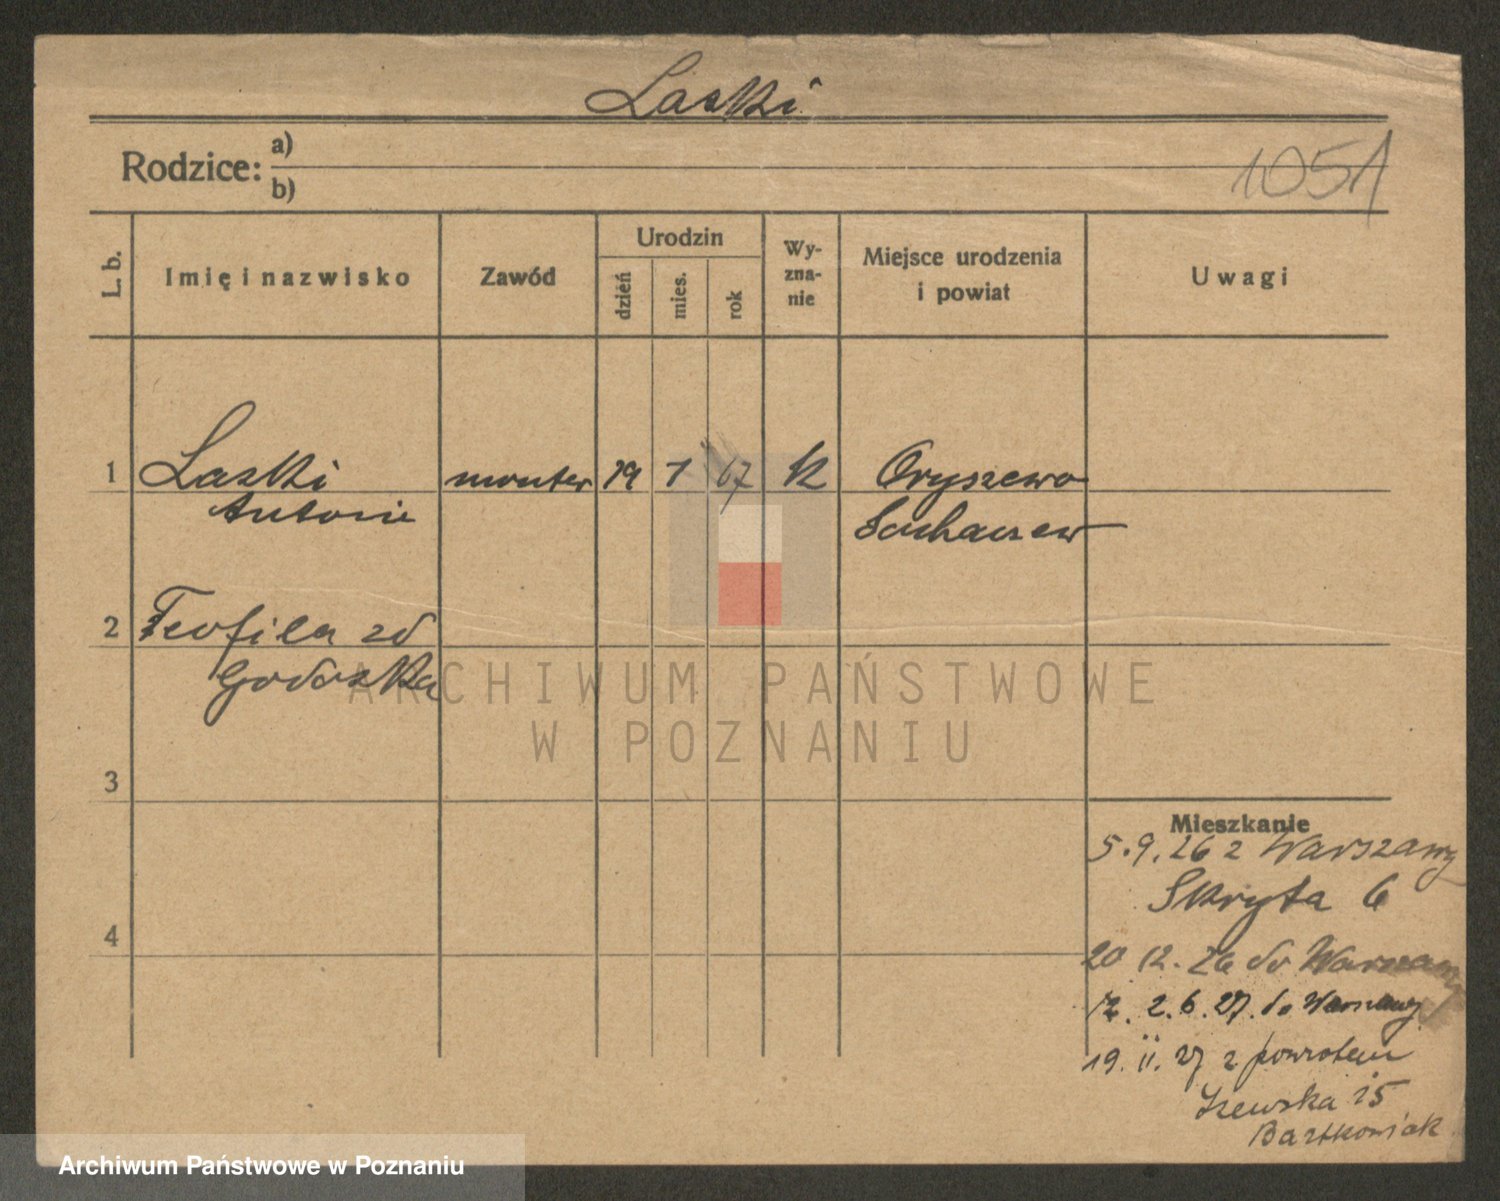 Laski
Rodzice: a)
b)
1051
L. b.
Imię i nazwisko
Zawód
Urodzin
dzień
mies.
rok
Wy-
zna-
nie
Miejsce urodzenia
i powiat
Uwagi
1 Laski monter 19 1 67 k Oryszewo
Antoni Sochaczew
2 Teofila zd
Godoszka
3
4
Mieszkanie
5.9.26 z Warszawy
Skryta 6
20 12. 26 do Warszawy
2.6.27. do Warszawy
19. II. 27 z powrotem
15
Bartkowiak
ARCHIWUM PAŃSTWOWE
W POZNANIU
Archiwum Państwowe w Poznaniu